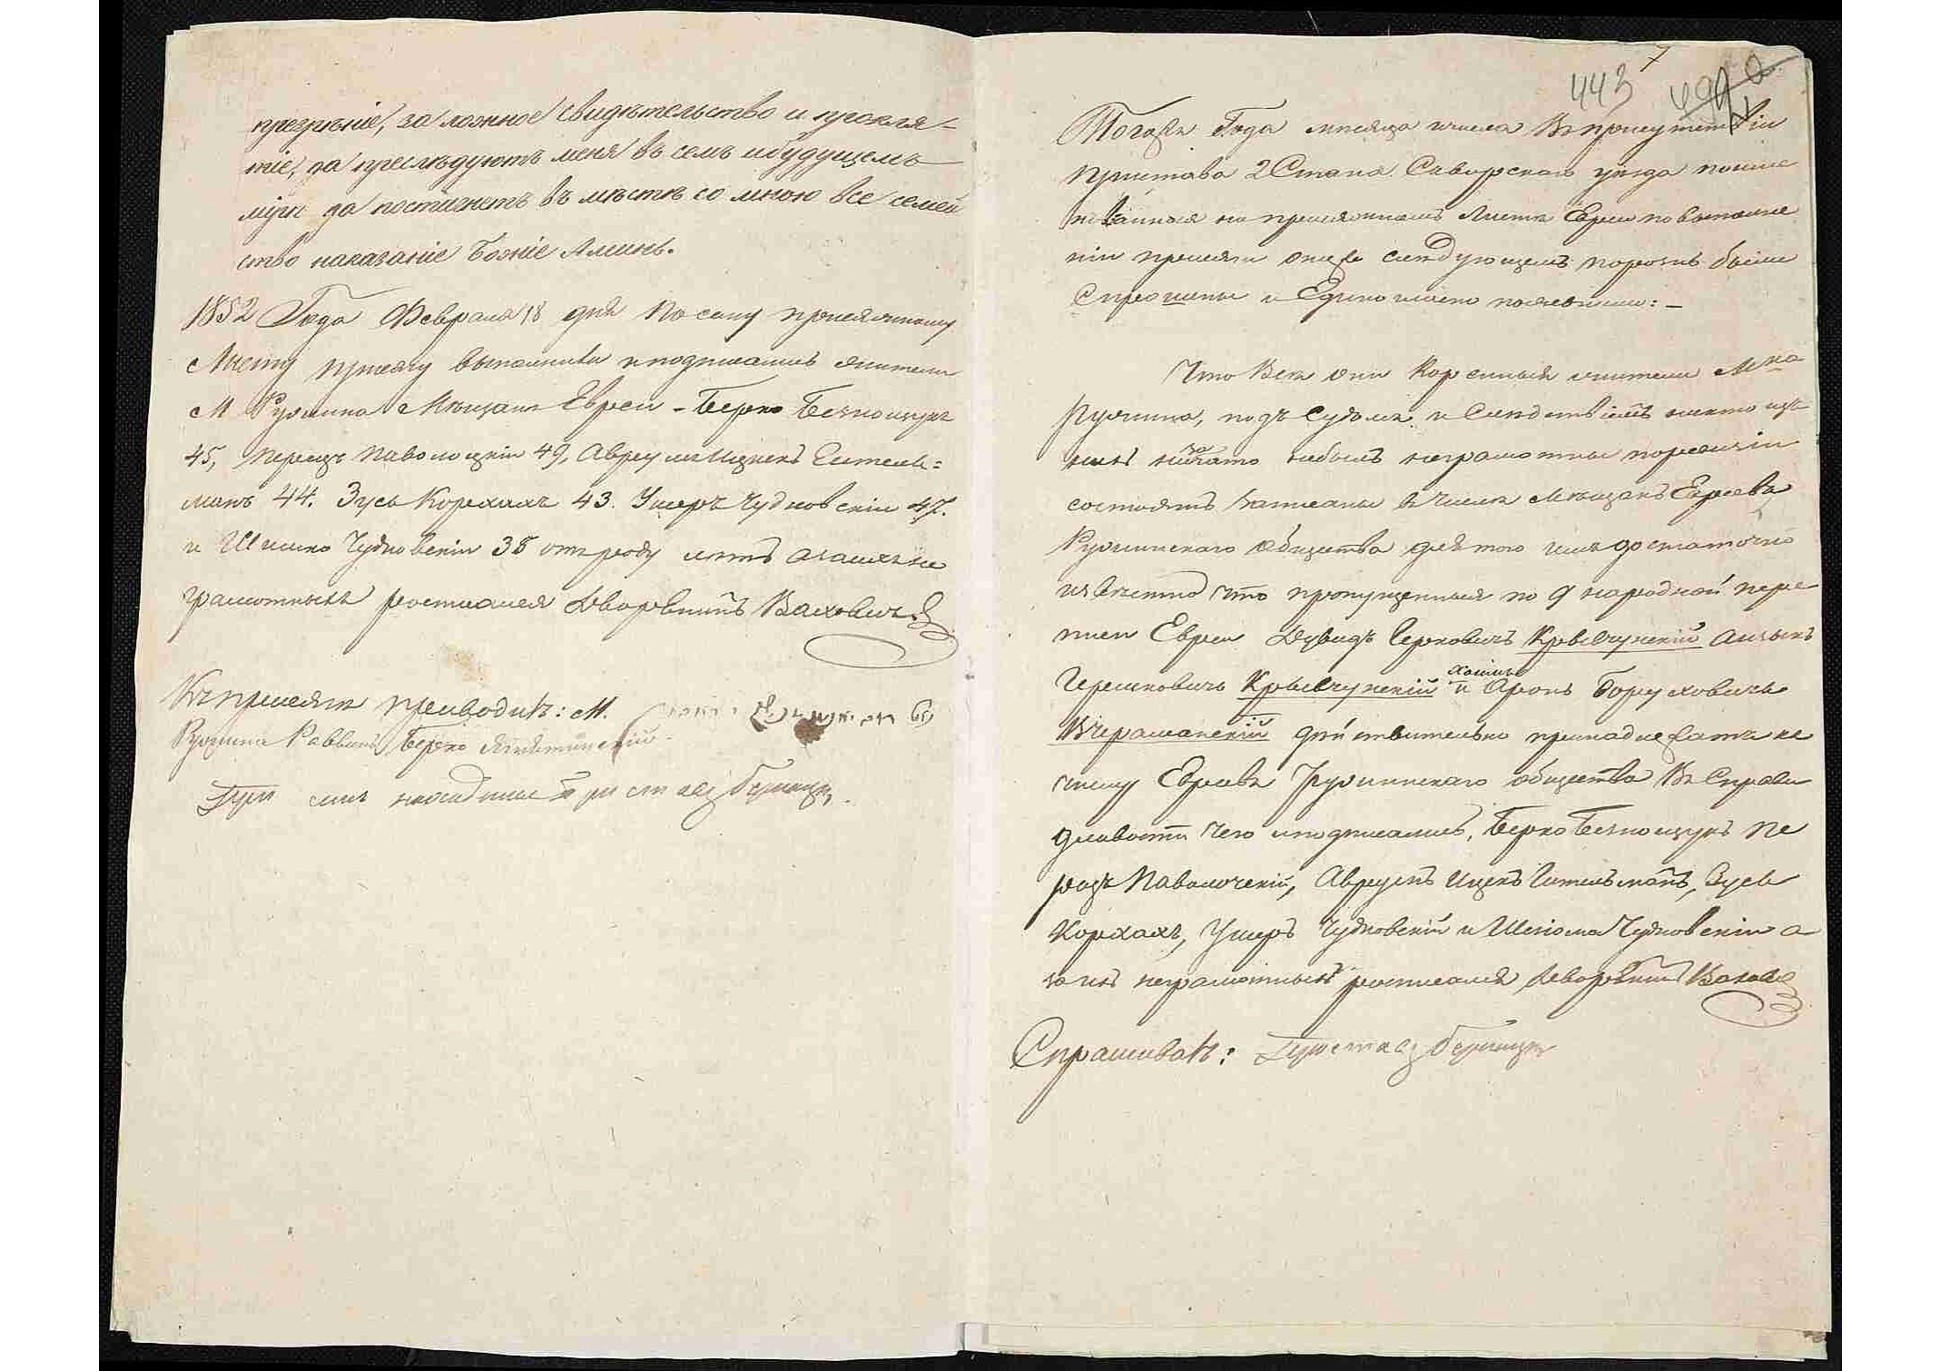 презрѣніе, за ложное свидѣтельство и прокля-
тіе, да преслѣдуютъ меня въ семъ и будущемъ
мірѣ да постигнетъ въ мѣстѣ со мною все семей
ство наказаніе Божіе Аминь.
1852 Года Февраля 18 дня По сему присяжному
Листу присягу выполнили и подписались жители
М Ружина Мѣщане Евреи - Берко Безнощукъ
45, Перецъ Паволоцкій 49, Аврумъ Ицекъ Гитель=
манъ 44. Зусь Коржахъ 43. Ушеръ Чудновскій 47.
и Шлиома Чудновскій 38 отъ роду лѣтъ а за ихъ не
грамотныхъ росписался Дворянинъ
Къ присягѣ приводилъ: М.
Ружина Раввинъ Берко
При семъ находился Приставъ
443
Тогожъ Года мѣсяца и числа Въ присутствіи
Пристава 2 Стана Сквирскаго уѣзда поиме
нованные на присяжномъ Листѣ Евреи по выполне
ніи присяги онаго слѣдующемъ порознь были
Спрошены и Единогласно показали: -
Что Всѣ они Коренныя жители М-ка
Ружина, подъ Судомъ и Слѣдствіемъ никто изъ
нихъ ни за что небылъ неграмотны
состоятъ записаны въ числѣ Мѣщанъ Евреевъ
Ружинскаго общества для того имъ достаточно
извѣстно что пропущенныя по 9 народной пере
писи Евреи Дувидъ Герковичъ Крывчунскій Айзикъ
Гершковичъ Крывчунскій и Аронъ Боруховичъ
Вчерашанскій дѣйствительно принадлежатъ къ
числу Евреевъ Ружинскаго общества Въ Справе
дливости чего и подписались, Берко Безнощукъ Пе
рецъ Паволочскій, Аврумъ Ицекъ Гительманъ, Зусь
Коржахъ, Ушеръ Чудновскій и Шлиома Чудновскій а
за ихъ неграмотныхъ росписался Дворянинъ
Спрашивалъ: Приставъ